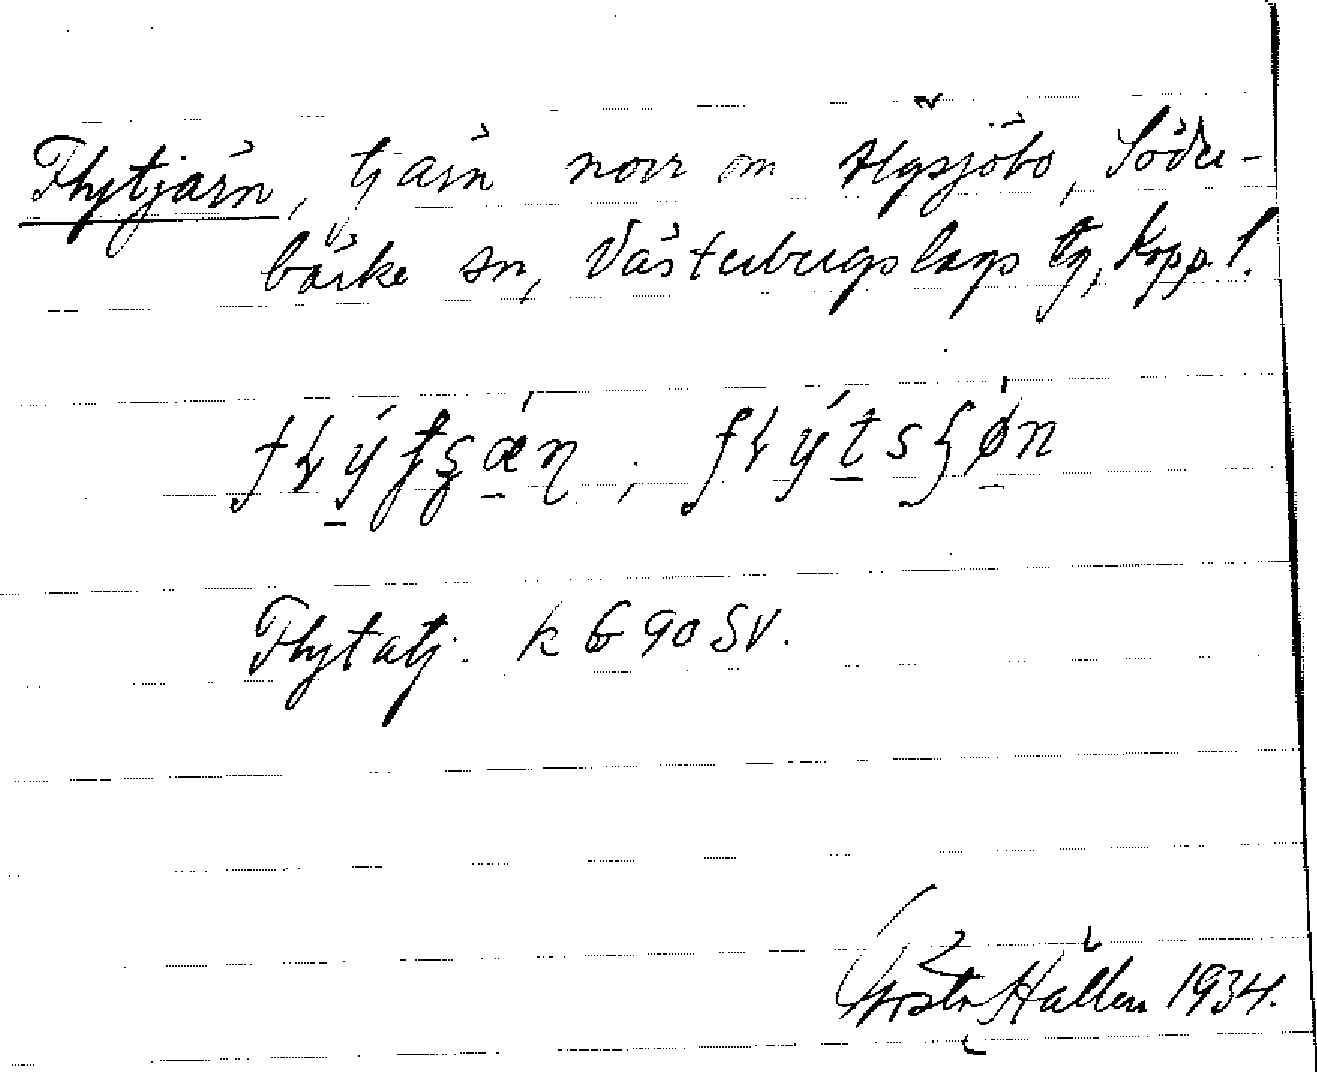 Flytjärn, tjärn norr om Älgsjöbo, Söder-
bärke sn, Västerbergslags tg, Kopp. l.
Flytatj. k G 90 SV.
Gösta Hallén 1934.